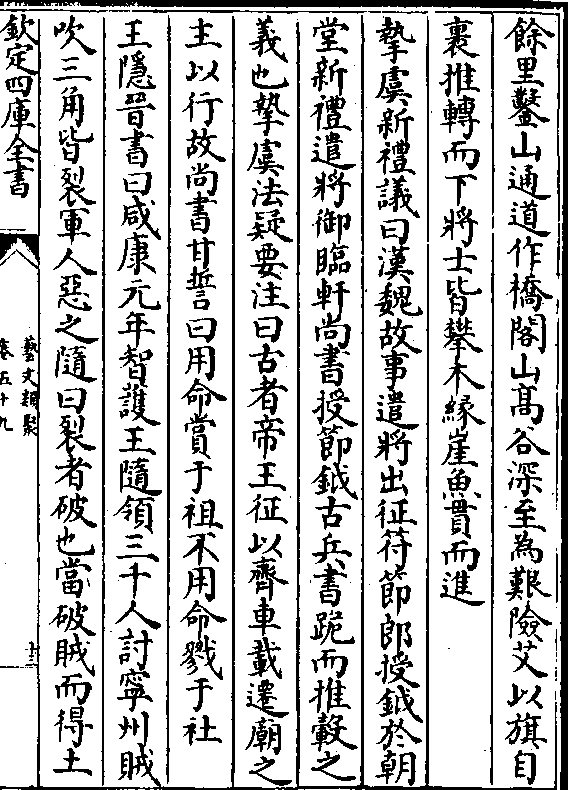 餘里鑿山通道作橋閣山髙谷深至為艱險艾以旗自
裹推轉而下將士皆攀木緣崖魚貫而進
摯虞新禮議曰漢魏故事遣將出征符節郎授鉞於朝
堂新禮遣將御臨軒尚書授節鉞古兵書跪而推轂之
義也摯虞法疑要注曰古者帝王征以齊車載遷廟之
主以行故尚書甘誓曰用命賞于祖不用命戮于社
王隱晉書曰咸康元年智護王隨領三千人討寧州賊
吹三角皆裂軍人惡之隨曰裂者破也當破賊而得土
欽定四庫全書
藝文類聚
卷五十九